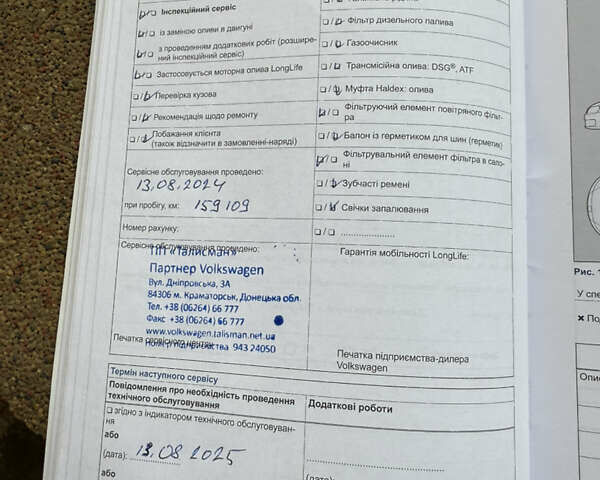 Інспекційний сервіс
із заміною оливи в двигуні
з проведенням додаткових робіт (розширений інспекційний сервіс)
Застосовується моторна олива LongLife
Перевірка кузова
Рекомендація щодо ремонту
Побажання клієнта
(також відзначити в замовленні-наряді)
Сервісне обслуговування проведено:
13.08.2024
при пробігу, км: 159109
Номер рахунку:
Сервісне обслуговування проведено:
ПП «Талисман»
Партнер Volkswagen
Вул. Дніпровська, 3А
84306 м. Краматорськ, Донецька обл.
Тел. +38 (06264) 66 777
Факс +38 (06264) 66 777
www.volkswagen.talisman.net.ua
Печатка сервісного центру
943 24050
Фільтр дизельного палива
Газоочисник
Трансмісійна олива: DSG®, ATF
Муфта Haldex: олива
Фільтруючий елемент повітряного фільт-
ра
Балон із герметиком для шин (герметик)
Фільтрувальний елемент фільтра в сало-
ні
Зубчасті ремені
Свічки запалювання
Гарантія мобільності LongLife:
Печатка підприємства-дилера
Volkswagen
Термін наступного сервісу
Повідомлення про необхідність проведення
технічного обслуговування
згідно з індикатором технічного обслуговуван-
ня
або
(дата): 13.08 2025
або
Додаткові роботи
(дата):
Рис. 1
У спе
Опис